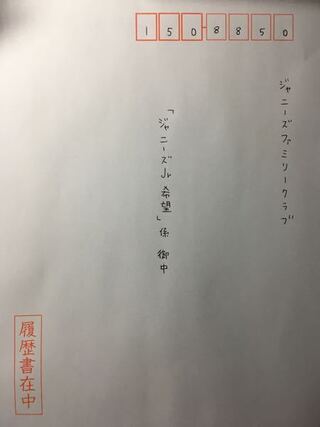 150-8850
ジャニーズファミリークラブ
「ジャニーズJr希望」係 御中
履歴書在中